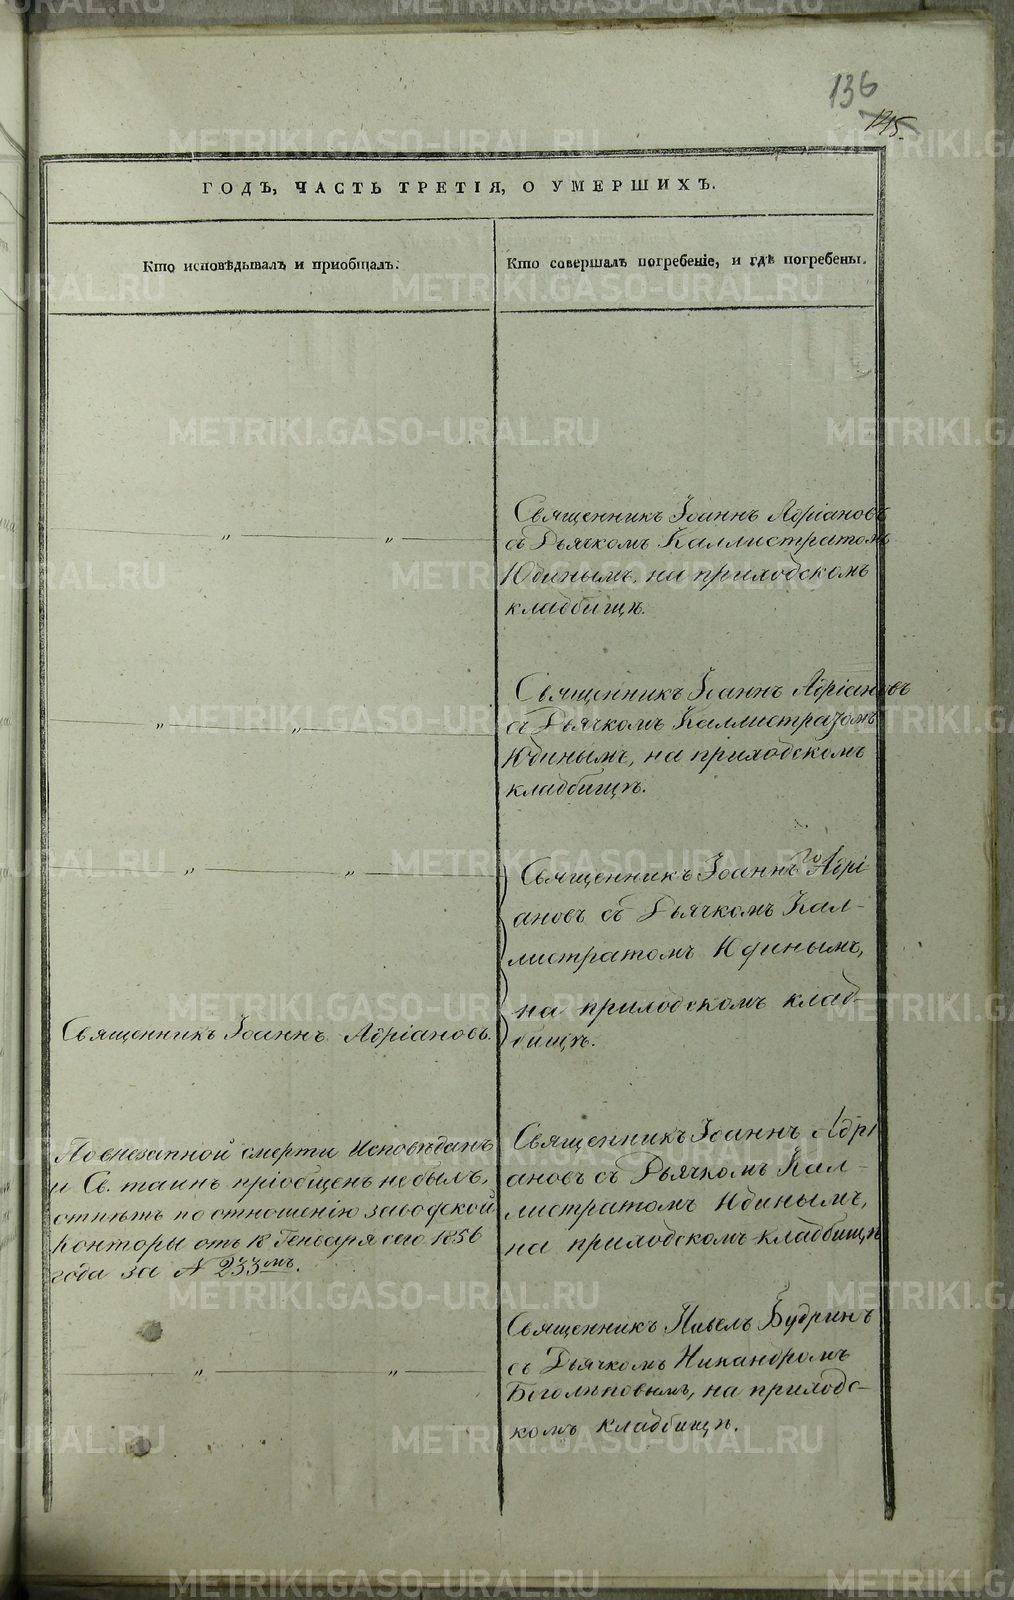 136
145.
ГОДЪ, ЧАСТЬ ТРЕТІЯ, О УМЕРШИХЪ.
Кто исповѣдывалъ и пріобщалъ.
Кто совершалъ погребеніе, и гдѣ погребены.
„ „
Священникъ Іоаннъ Адріановъ
съ Дьячкомъ Каллистратомъ
Юдинымъ, на приходскомъ
кладбищѣ.
„ „
Священникъ Іоаннъ Адріановъ
съ Дьячкомъ Каллистратомъ
Юдинымъ, на приходскомъ
кладбищѣ.
„ „
Священникъ Іоаннъ Адрі
ановъ съ Дьячкомъ Кал-
листратомъ Юдинымъ,
на приходскомъ клад-
бищѣ.
Священникъ Іоаннъ Адріановъ.
По внезапной смерти Исповѣданъ
и Св. таинъ пріобщенъ небылъ,
отпѣтъ по отношенію заводской
Конторы отъ 18 Генваря сего 1856
года за № 233мъ.
Священникъ Іоаннъ Адрі
ановъ съ Дьячкомъ Кал-
листратомъ Юдинымъ,
на приходскомъ кладбищѣ
„ „
Священникъ Павелъ Будринъ
съ Дьячкомъ Никандромъ
Боголѣповымъ, на приходс-
комъ кладбищѣ.
METRIKI.GASO-URAL.RU